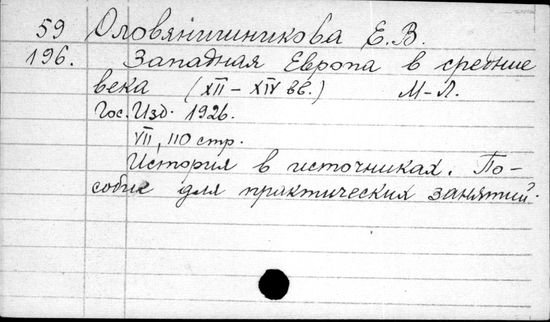 59 Оловянишникова Е.В.
196. Западная Европа в средние
века (XII - XIV вв.) М-Л.
Гос. Изд. 1926.
VII, 110 стр.
История в источниках. По-
собие для практических занятий.